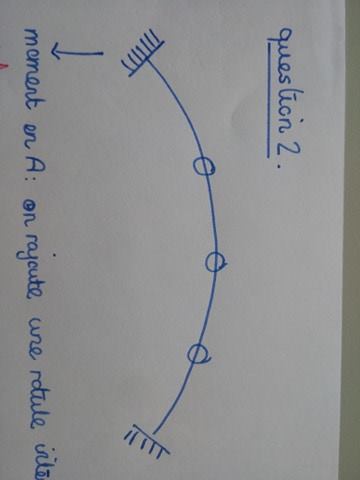 question 2.
moment en A: on rajoute une rotule